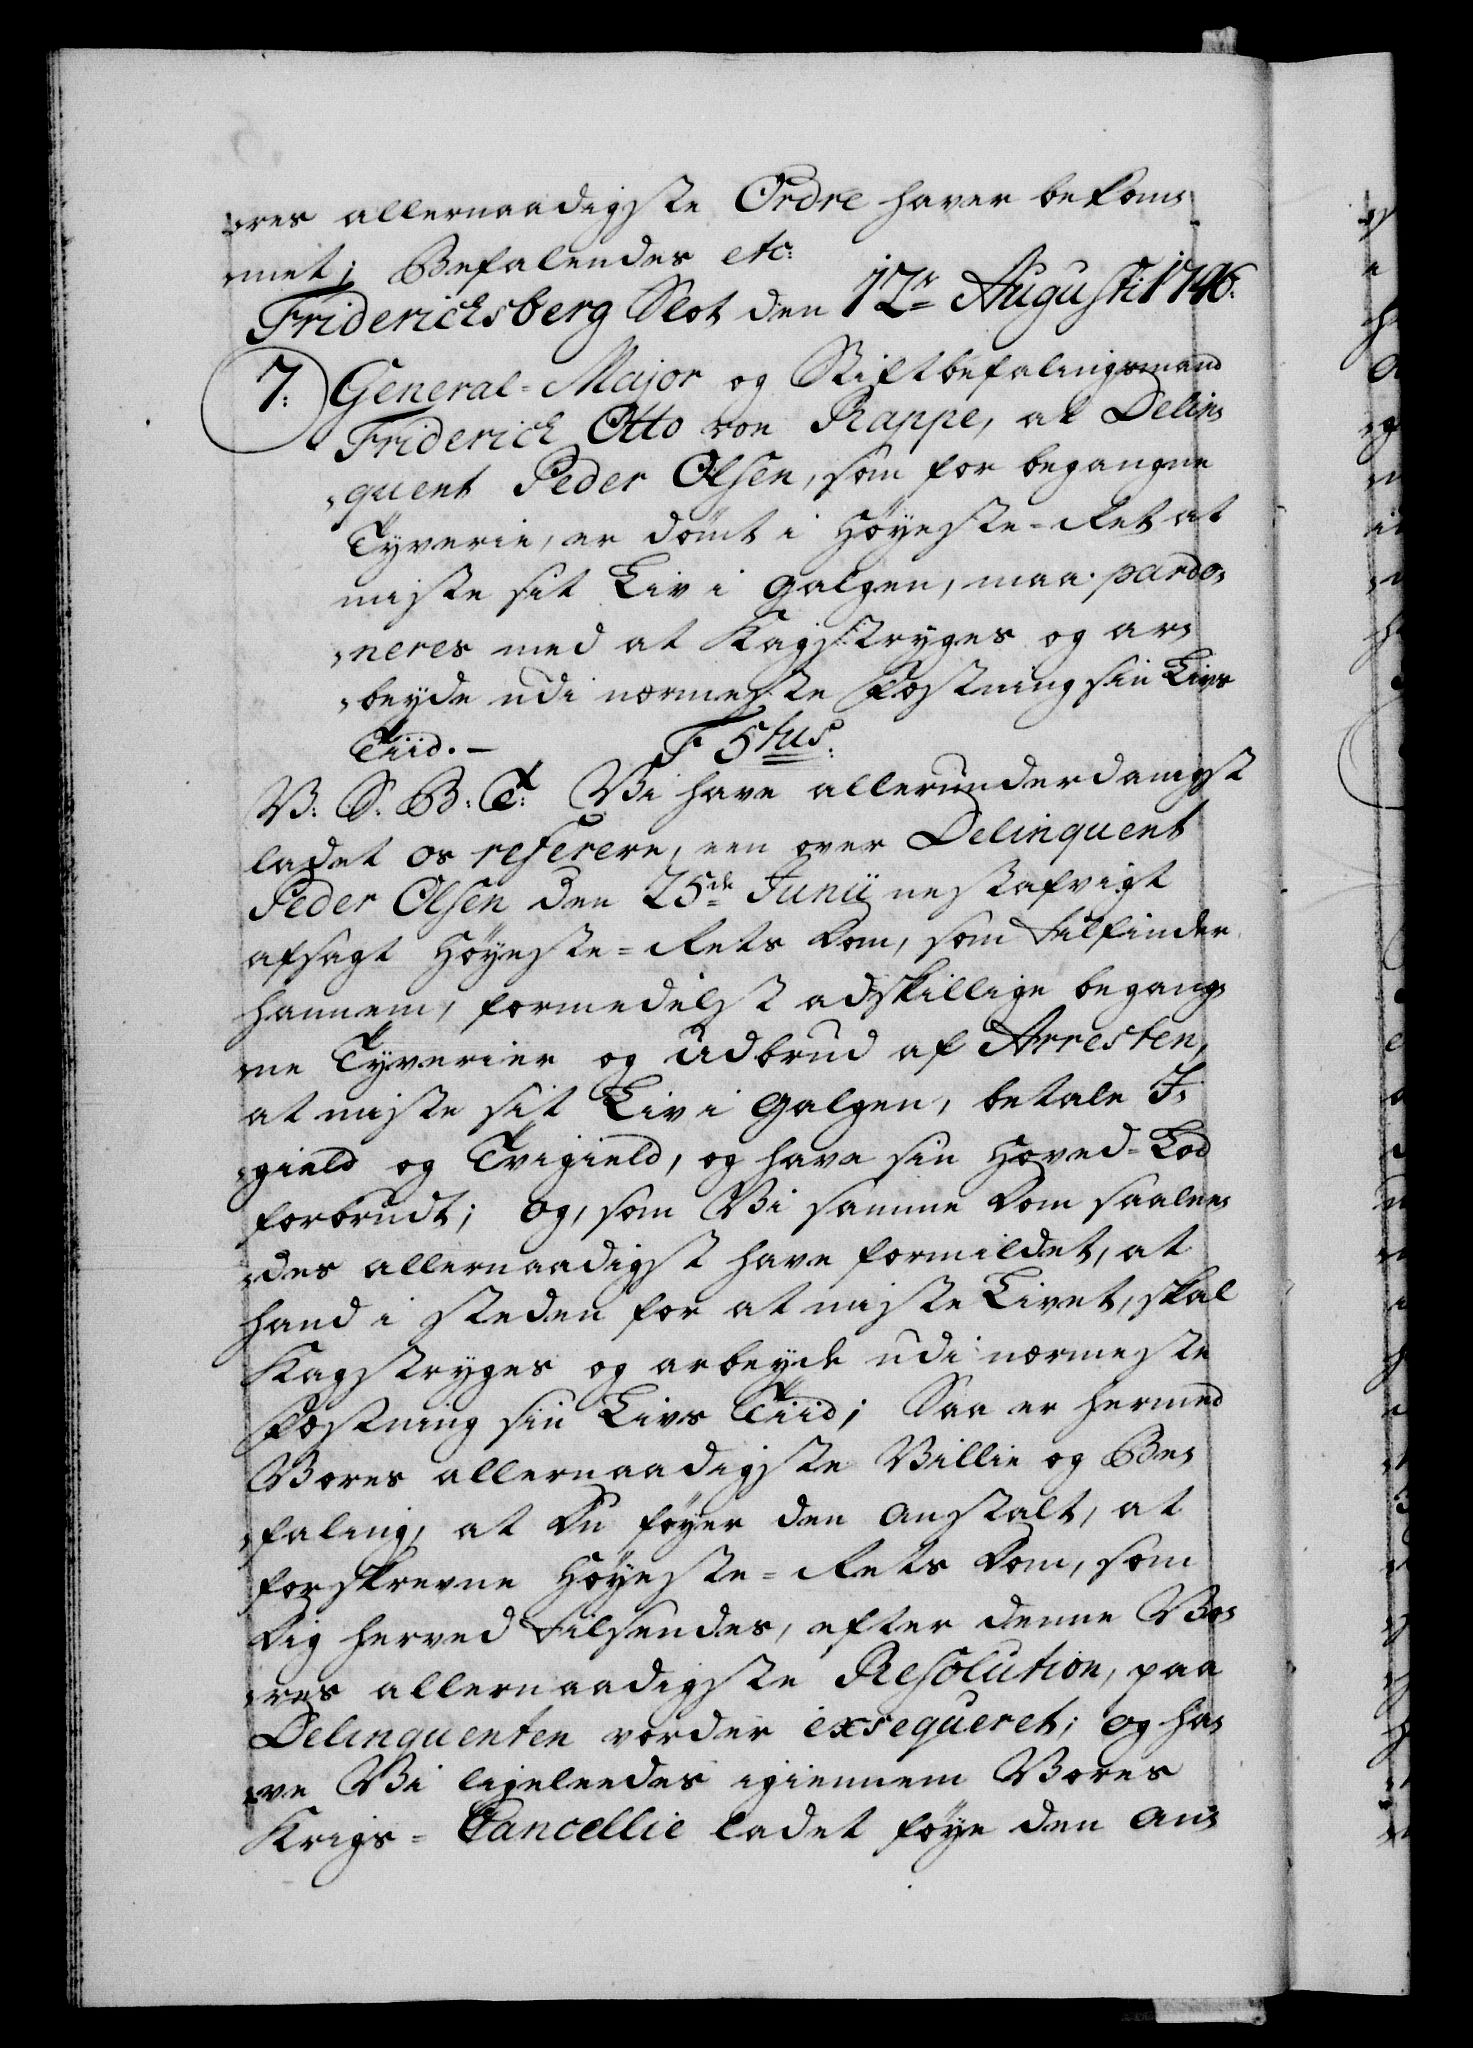 „res allernaadigste Ordre haver bekom„
„met; Befalendes etc:
Friderichsberg Slot den 12te Augusti: 1746.
7. General-Major og Stiftbefalingsmand
Friderich Otto von Rappe, at Delin„
„quent Peder Olsen, som for begangne
Tyverie, er dömt i Höyeste-Ret at
miste sit Liv i Galgen, maa pardo„
„neres med at Kagstryges og ar„
„beyde udi nærmeste Fæstning sin Livs
Tiid. — F 5tus.
V: S: B: T: Vi have allerunderdanigst
ladet os referere, een over Delinquent
Peder Olsen den 25de Junii nestafvigt
afsagt Höyeste-Rets Dom, som tilfinder
hannem, formedelst adskillige begang„
„ne Tyverier og Udbrud af Arresten,
at miste sit Liv i Galgen, betale I„
„gield og Tvigield, og have sin Hoved-Lod
forbrudt; og, som Vi samme Dom saalee„
„des allernaadigst have formildet, at
hand i steden for at miste Livet, skal
Kagstryges og arbeyde udi nærmeste
Fæstning sin Livs Tiid; Saa er hermed
Vores allernaadigste Villie og Be„
„faling, at Du föyer den Anstalt, at
forskrevne Höyeste-Rets Dom, som
Dig herved tilsendes, efter denne Vo„
„res allernaadigste Resolution, paa
Delinquenten vorder exsequeret; og ha„
„ve Vi ligeleedes igiennem Vores
Krigs-Cancellie ladet föye den An„